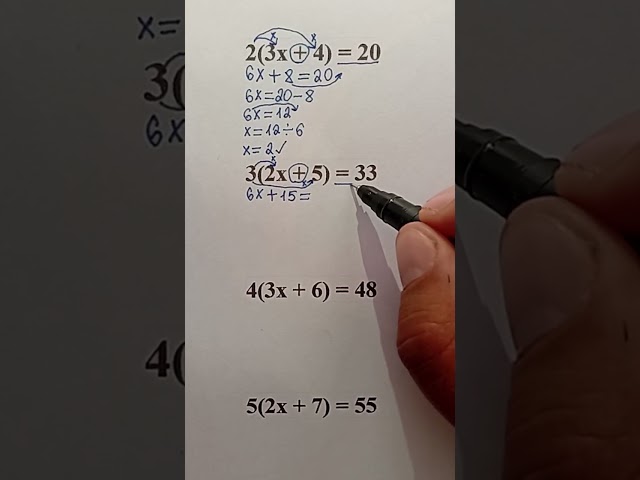 2(3x + 4) = 20
6x + 8 = 20
6x = 20 - 8
6x = 12
x = 12 ÷ 6
x = 2 ✓
3(2x + 5) = 33
6x + 15 =
4(3x + 6) = 48
5(2x + 7) = 55